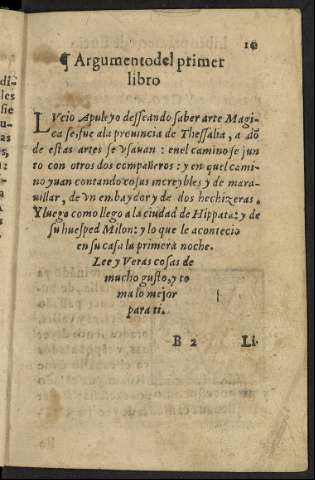 10
¶ Argumento del primer
libro
LVcio Apuleyo desseando saber arte Magi-
ca se, fue ala prouincia de Thessalia, a dõ
de estas artes se vsauan: enel camino se jun
to con otros dos compañeros: y en quel cami-
no yuan contando cosas increybles y de mara-
uillar, de vn embaydor y de dos hechizeras.
Y luego como llego a la ciudad de Hippata: y de
su huesped Milon: y lo que le acontecio
en su casa la primera noche.
Lee y Veras cosas de
mucho gusto, y to
ma lo mejor
para ti.
B 2 Li.
di-
les
sie
u-
as